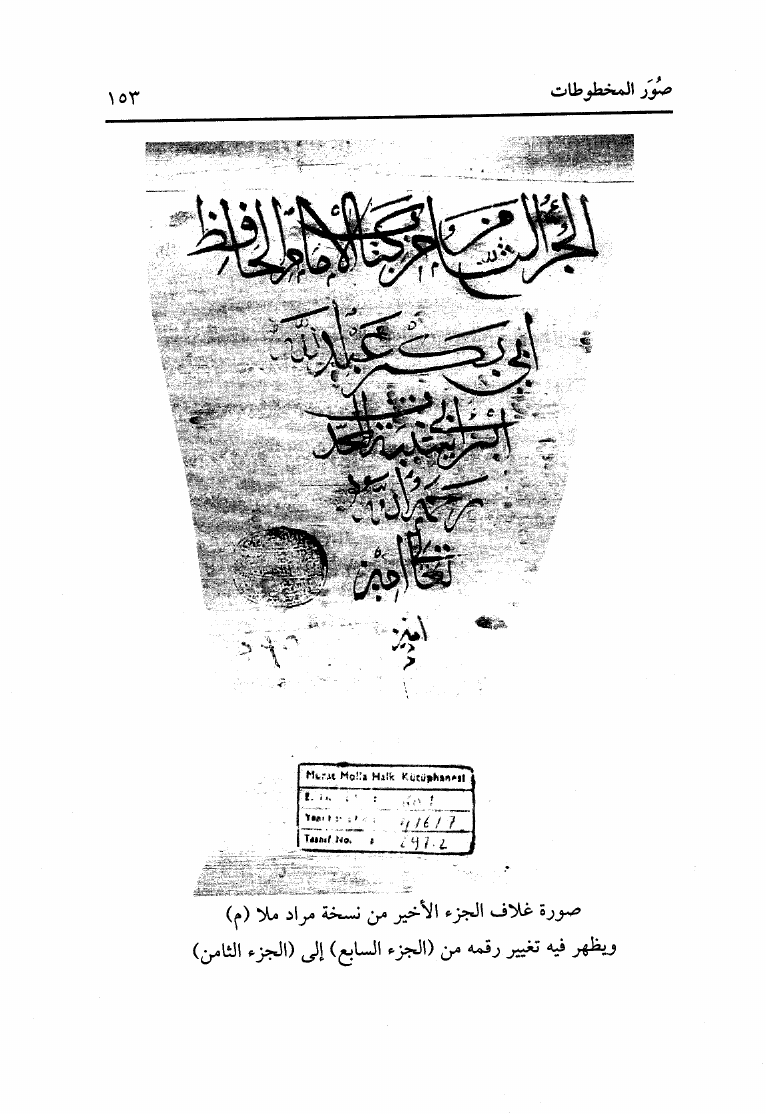 صُوَر المخطوطات
١٥٣
الجزء الثامن من كتاب الامام الحافظ
ابي بكر عبد الله
ابن ابي شيبة
رحمه الله
تعالى امين
امين
Murat Molla Halk Kütüphanesi
Tasnif No. : 297.2
صورة غلاف الجزء الأخير من نسخة مراد ملا (م)
ويظهر فيه تغيير رقمه من (الجزء السابع) إلى (الجزء الثامن)